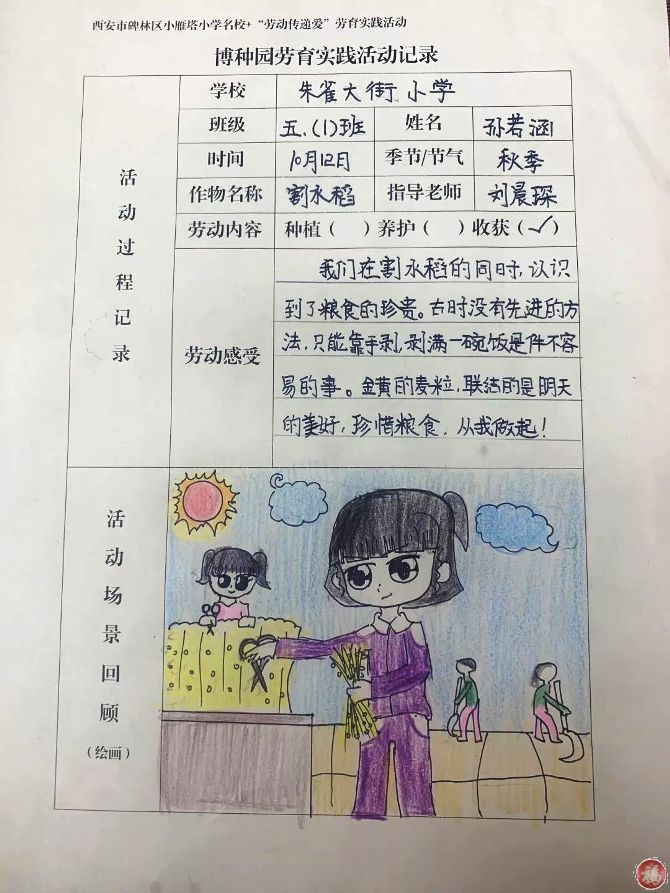 西安市碑林区小雁塔小学名校+“劳动传递爱”劳育实践活动
博种园劳育实践活动记录
活动过程记录
学校 朱雀大街小学
班级 五.(1)班 姓名 孙若涵
时间 10月12日 季节/节气 秋季
作物名称 割水稻 指导老师 刘晨琛
劳动内容 种植( )养护( )收获(✓)
劳动感受
我们在割水稻的同时,认识
到了粮食的珍贵。古时没有先进的方
法,只能靠手剥,剥满一碗饭是件不容
易的事。金黄的麦粒,联结的是明天
的美好,珍惜粮食.从我做起!
活动场景回顾
(绘画)
福